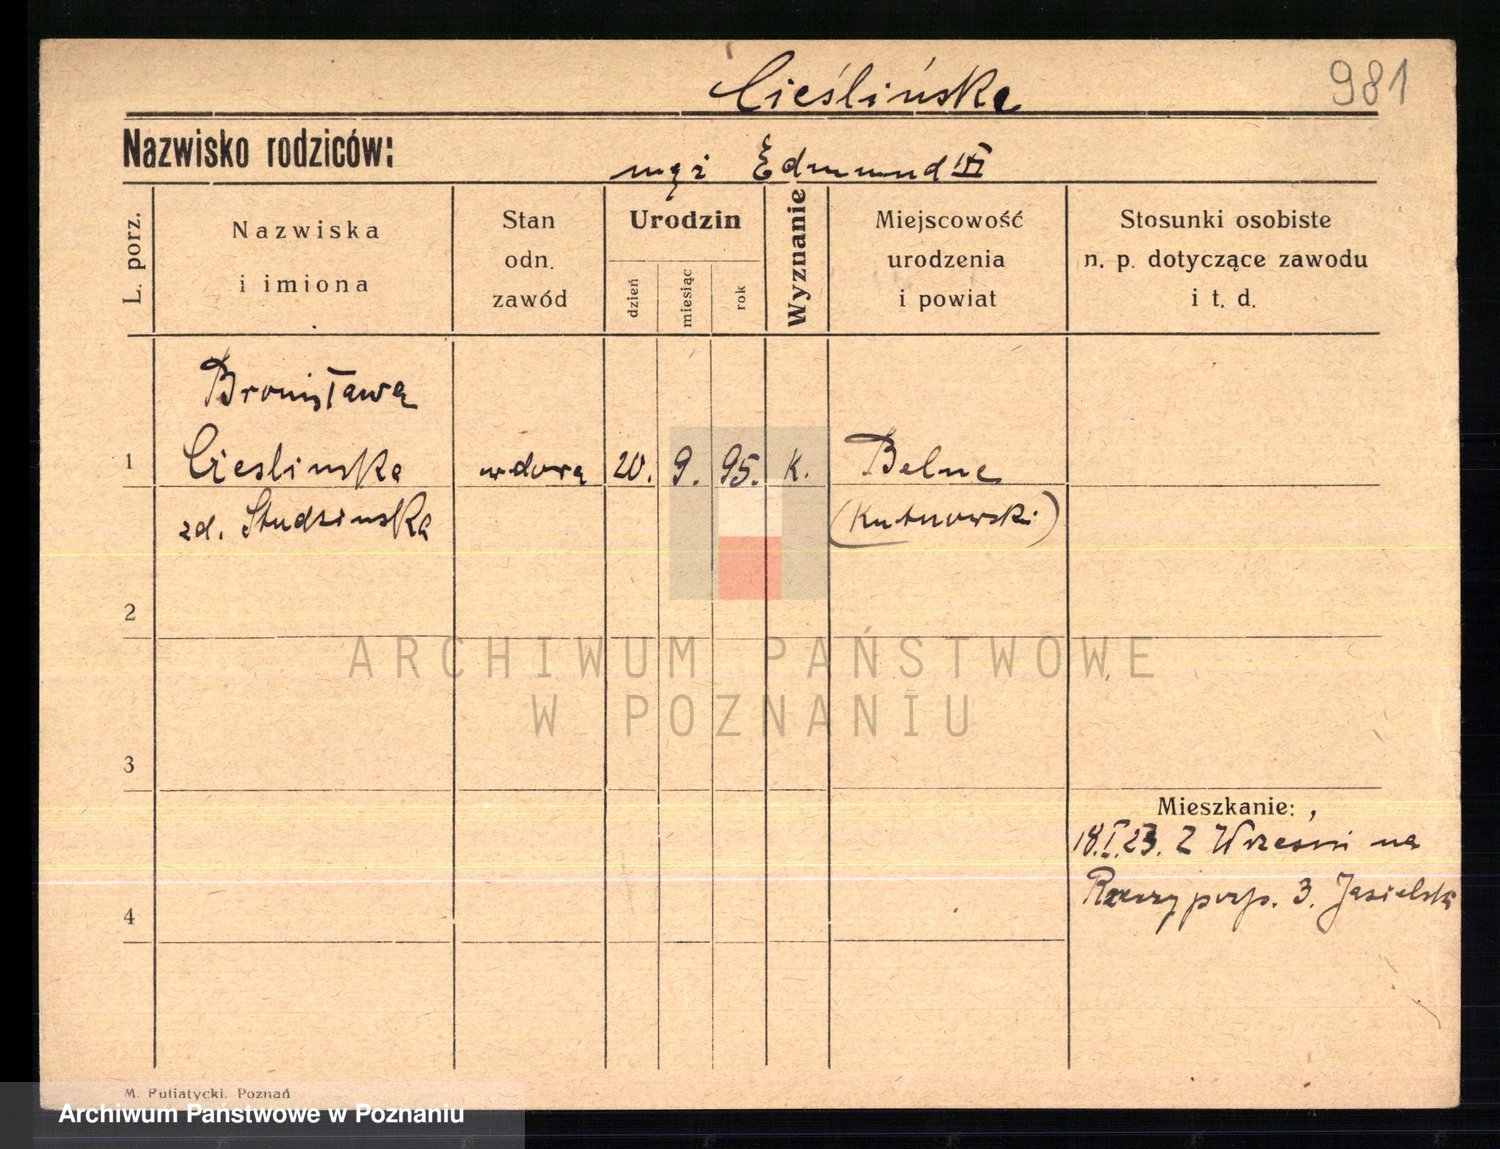 Cieślińska
981
Nazwisko rodziców:
mąż Edmund
L. porz.
Nazwiska
i imiona
Stan
odn.
zawód
Urodzin
dzień
miesiąc
rok
Wyznanie
Miejscowość
urodzenia
i powiat
Stosunki osobiste
n. p. dotyczące zawodu
i t. d.
Bronisława
1 Cieslinska wdowa 20. 9. 95. K. Belne
zd. Studzinska (Kutnowski)
2
ARCHIWUM PAŃSTWOWE
W POZNANIU
3
Mieszkanie:
18.I.23. Z Wrzesni na
3. Jasielski
4
M. Putiatycki. Poznań
Archiwum Państwowe w Poznaniu